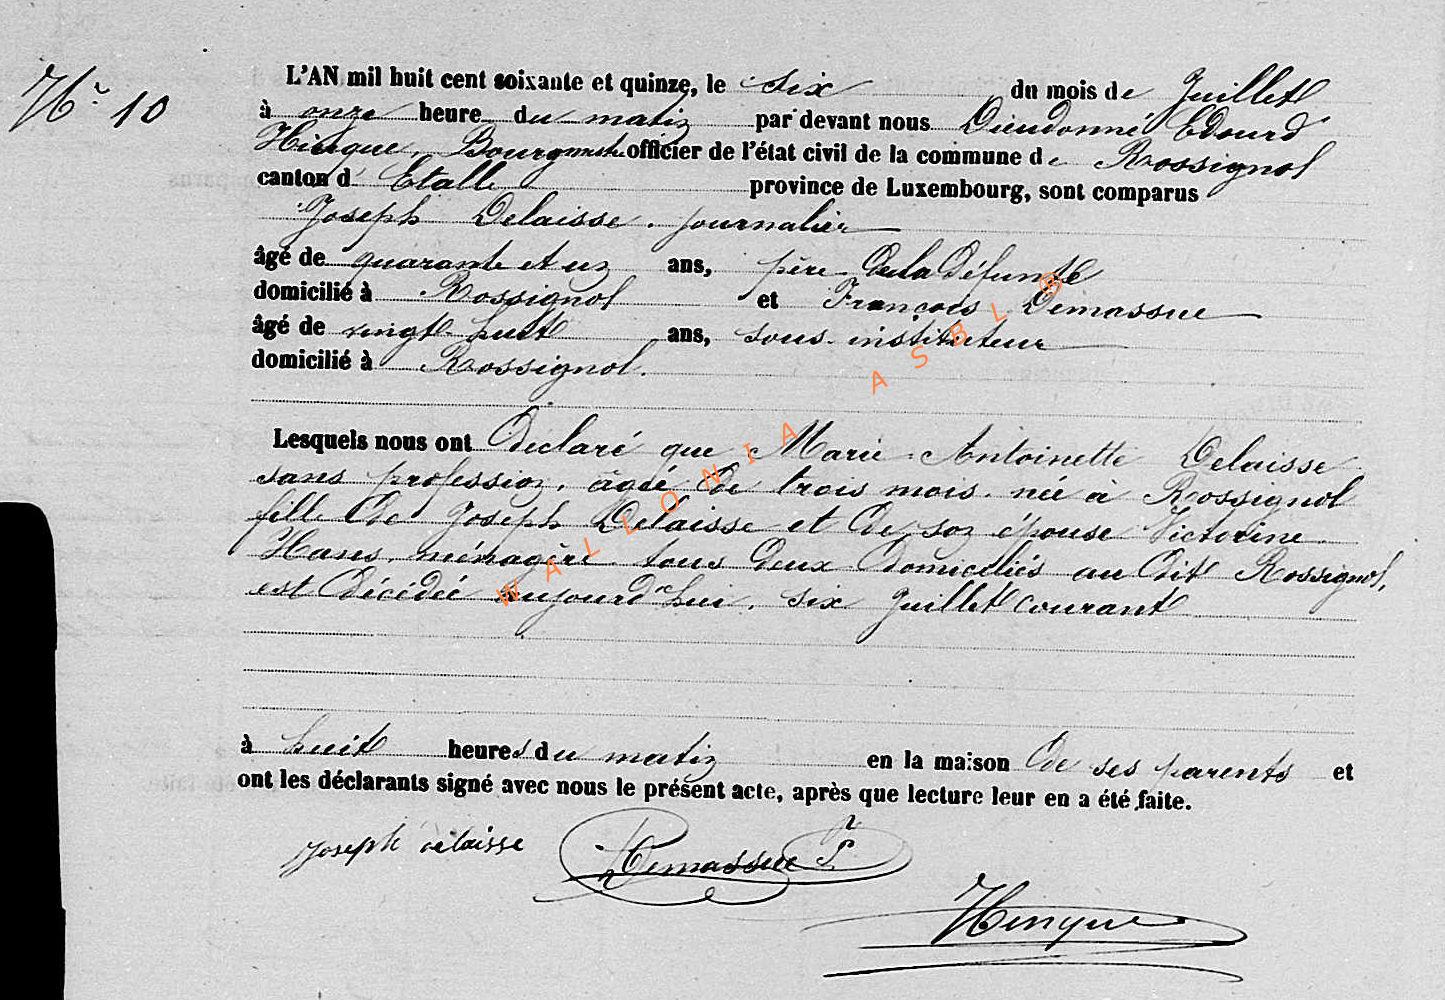 N° 10
L'AN mil huit cent soixante et quinze, le six du mois de Juillet
à onze heure du matin par devant nous Dieudonné Edourd
Hinque, Bourgmestre officier de l'état civil de la commune de Rossignol
canton d'Etalle province de Luxembourg, sont comparus
Joseph Delaisse, journalier
âgé de quarante et un ans, père de la défunte
domicilié à Rossignol et François Demassue
âgé de vingt huit ans, sous-instituteur
domicilié à Rossignol.
Lesquels nous ont déclaré que Marie-Antoinette Delaisse
sans profession, âgée de trois mois, née à Rossignol
fille de Joseph Delaisse et de son épouse Victorine
Hans, ménagère, tous deux domiciliés au dit Rossignol,
est décédée aujourd'hui, six Juillet courant
à huit heures du matin en la maison de ses parents et
ont les déclarants signé avec nous le présent acte, après que lecture leur en a été faite.
Joseph delaisse Demassue F.
Hinque
WALLONIA ASBL